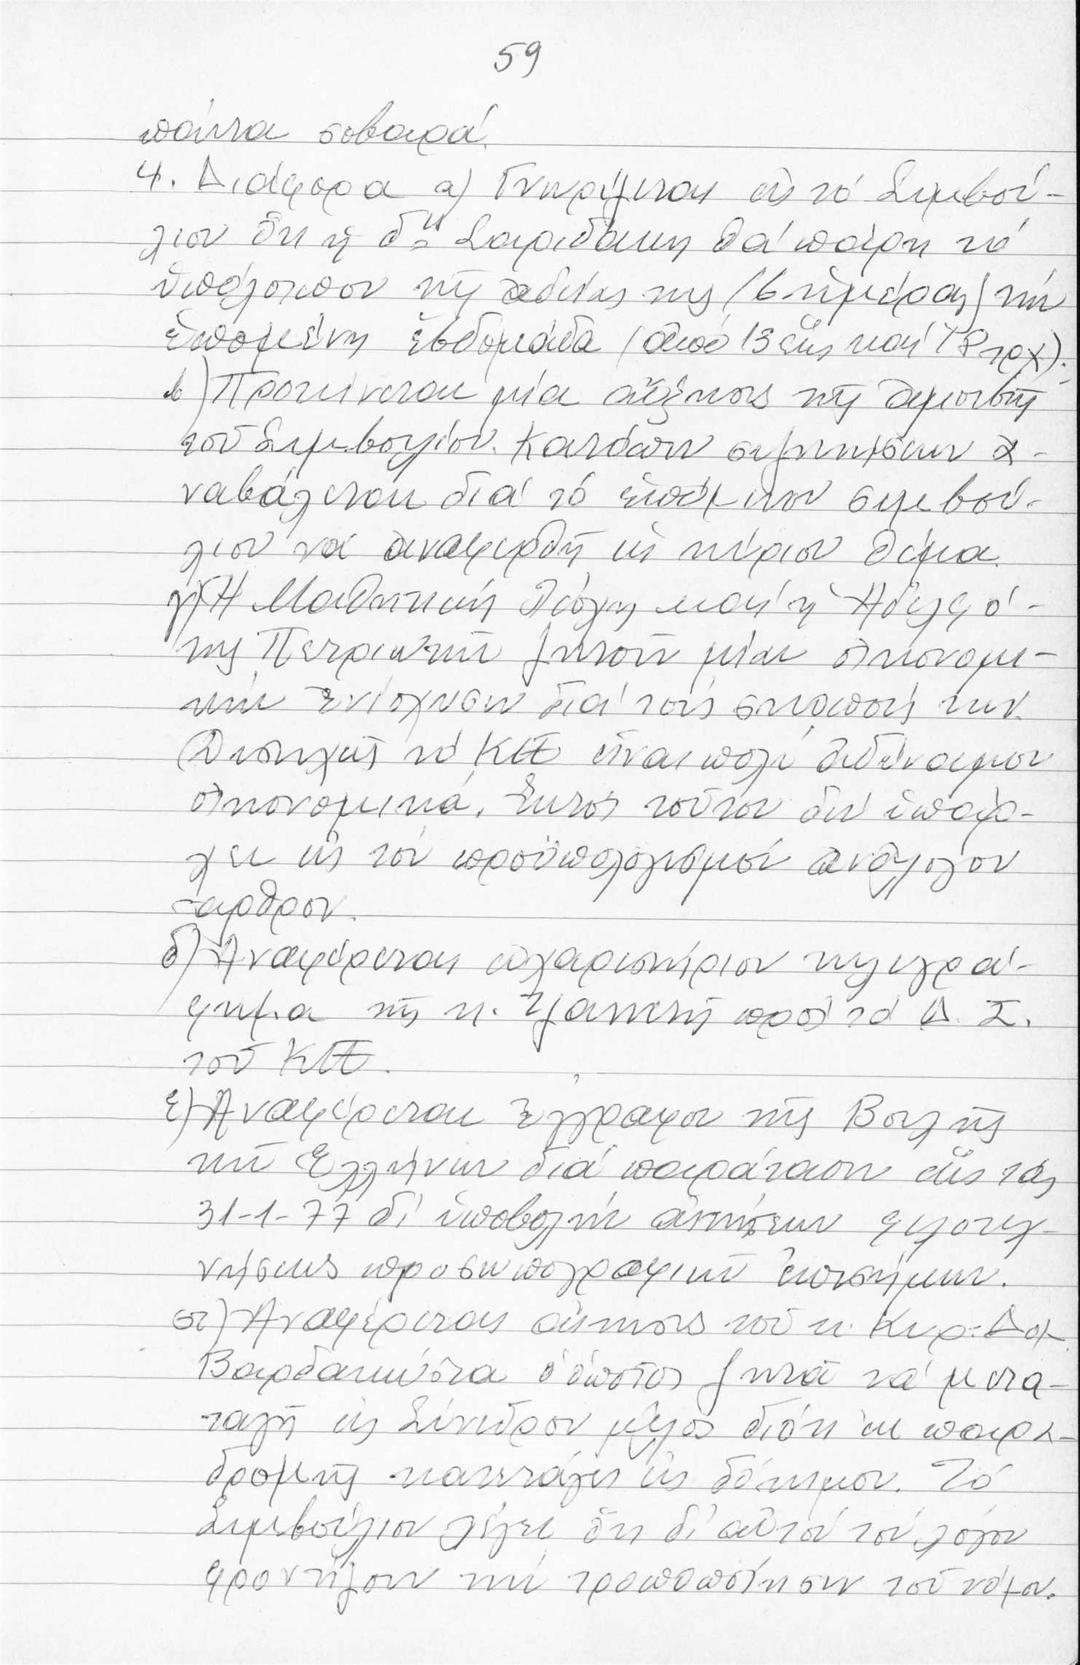 59
πάντα σοβαρά.
4. Διάφορα α) Γνωρίζεται εἰς τό Συμβού-
λιον ὅτι ἡ δ<sup>νίς</sup> Σαριδάκη θά πάρη τό
ὑπόλοιπον τῆς ἀδείας της (6 ἡμέρας) τήν
ἑπομένη ἑβδομάδα (ἀπό 13 ἕως καί 18 τρχ).
β) Προτείνεται μία αὔξησις τῆς ἀμοιβῆς
τοῦ Συμβουλίου. Κατόπιν συζητήσεων ἀ-
ναβάλεται διά τό ἑπόμενον συμβού-
λιον νά ἀναφερθῆ εἰς κύριον θέμα.
γ) Ἡ Μαθητική Λέσχη καί ἡ Ἀδελφό-
της Πετριωτῶν ζητοῦν μίαν οἰκονομι-
κήν ἐνίσχυσιν διά τούς σκοπούς των.
Δυστυχῶς τό ΚΠΕ εἶναι πολύ ἀδύναμον
οἰκονομικά. Ἐκτός τούτου δέν ὑπάρ-
χει εἰς τόν προϋπολογισμόν ἀνάλογον
ἄρθρον.
δ) Ἀναφέρεται εὐχαριστήριον τηλεγρά-
φημα τῆς κ. προς τό Δ. Σ.
τοῦ ΚΠΕ.
ε) Ἀναφέρεται ἔγγραφον τῆς Βουλῆς
τῶν Ἑλλήνων διά παράτασιν ἕως τάς
31-1-77 δι' ὑποβολήν αἰτήσεων φιλοτεχ-
νήσεως προσωπογραφιῶν ἐπισήμων.
στ) Ἀναφέρεται αἴτησις τοῦ κ. Κυρ.
Βαρδακώστα ὁ ὁποῖος ζητᾶ νά μετα-
ταγῆ εἰς Σύνεδρον μέλος διότι ἐκ παρα-
δρομῆς κατετάγει εἰς δόκιμον. Τό
Συμβούλιον λέγει ὅτι δι' αὐτόν τόν λόγον
φροντίζουν τήν τροποποίησιν τοῦ νόμου.